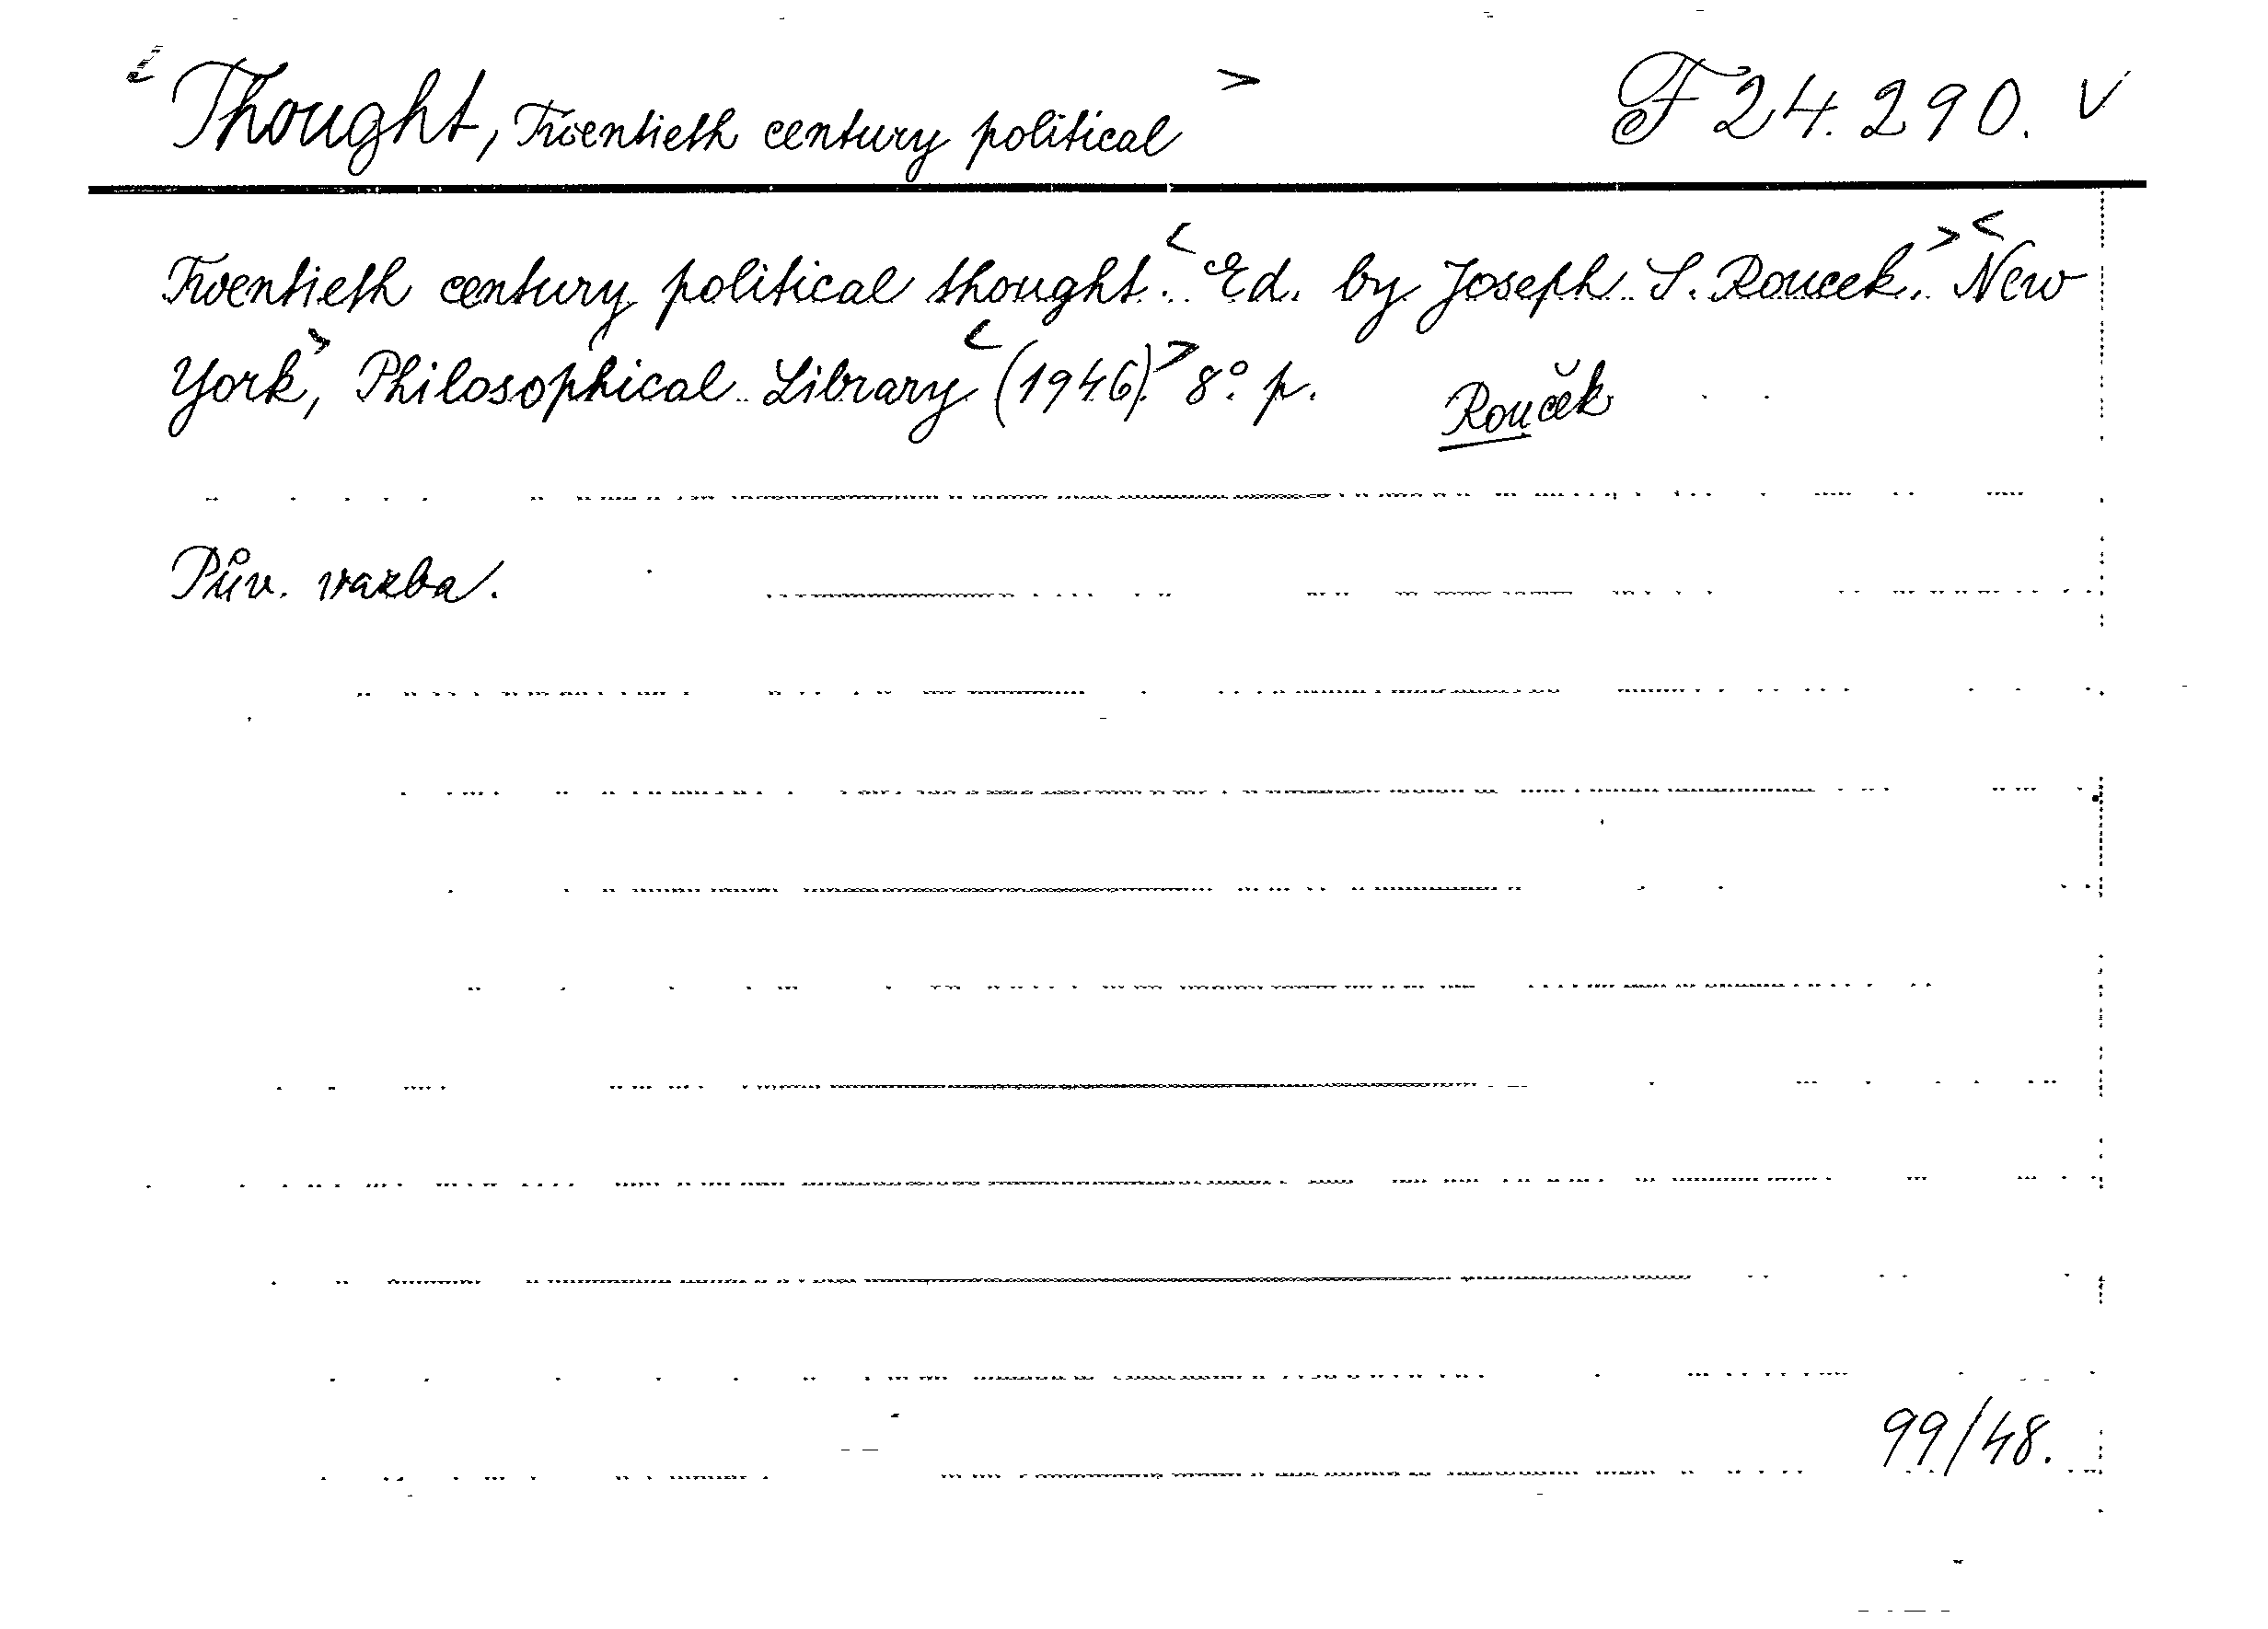 Thought, Twentieth century political > F 24.290. V
Twentieth century political thought. < Ed. by Joseph S. Roucek. > < New
York, > Philosophical Library < (1946). > 8° p. Rouček
Pův. vazba.
99/48.